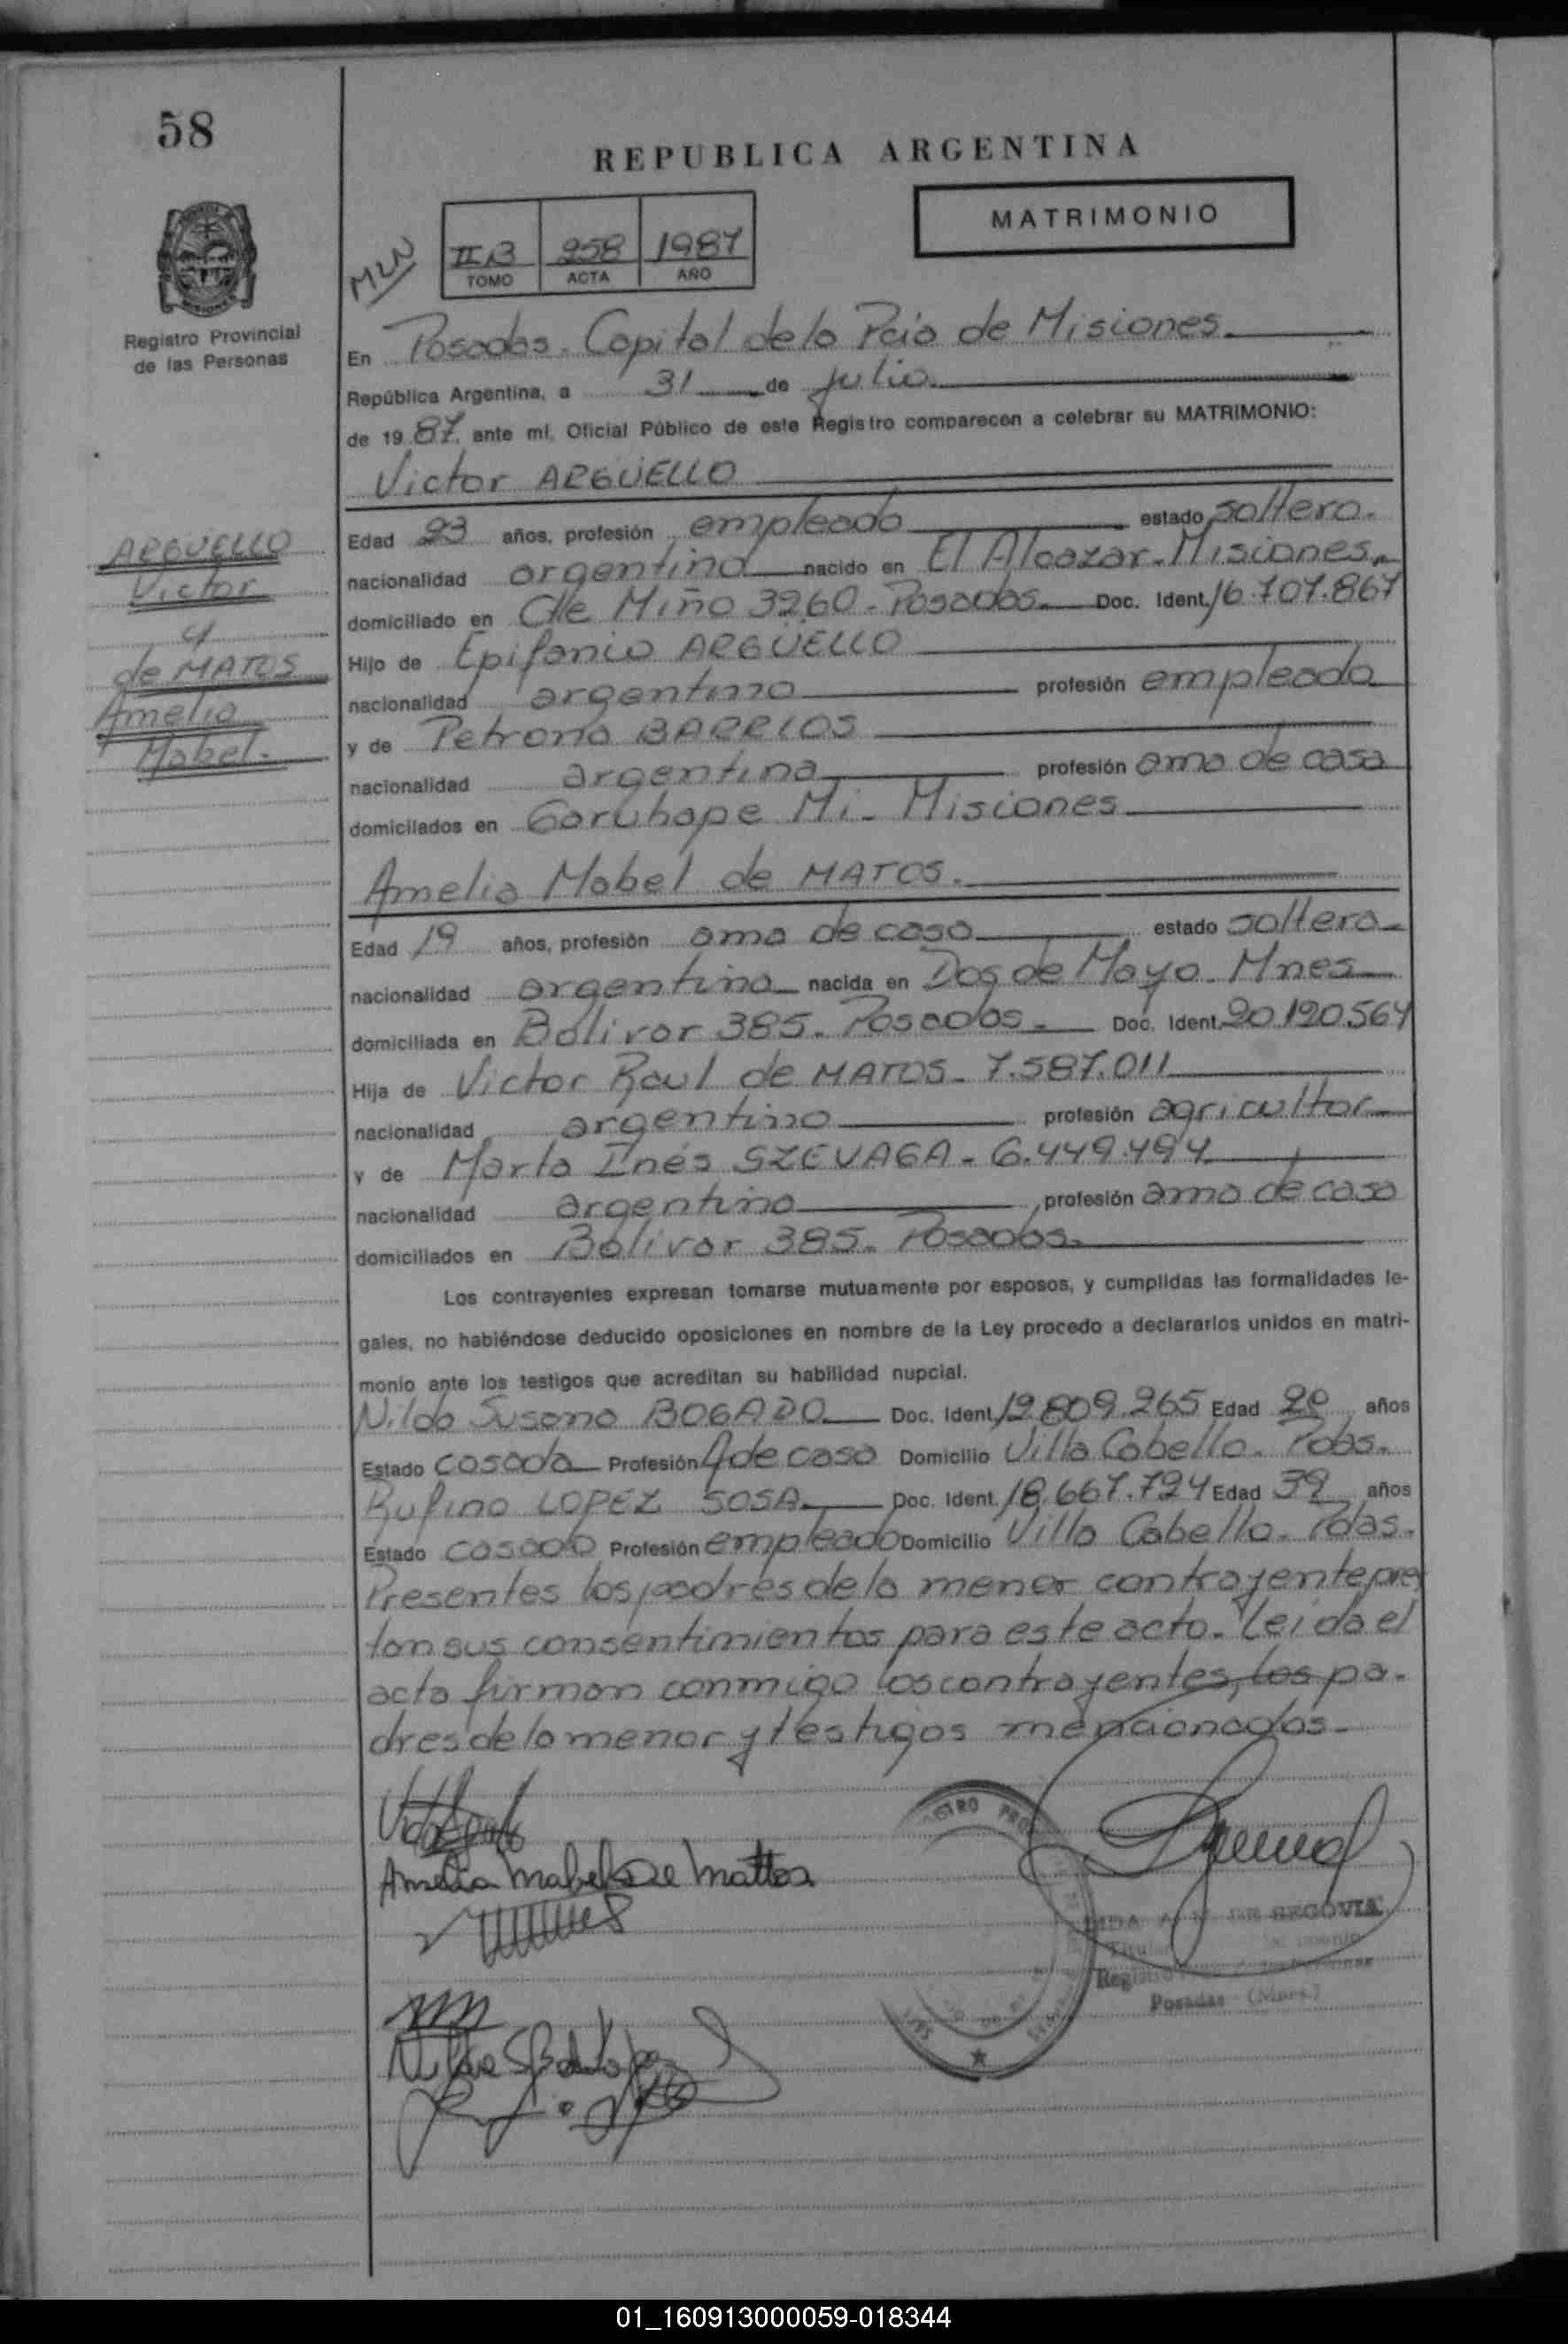 58
REPUBLICA ARGENTINA
MATRIMONIO
MLN
II B 258 1987
TOMO ACTA AÑO
Registro Provincial
de las Personas
MISIONES
En Posadas. Capital de la Pcia de Misiones.
República Argentina, a 31 de julio.
de 1987. ante mí, Oficial Público de este Registro comparecen a celebrar su MATRIMONIO:
Victor ARGÜELLO
ARGÜELLO
Victor
y
de MATOS
Amelia
Mabel.
Edad 23 años, profesión empleado estado soltero.
nacionalidad argentino nacido en El Alcazar. Misiones.
domiciliado en Clle Miño 3260. Posadas. Doc. Ident. 16.707.867
Hijo de Epifanio ARGÜELLO
nacionalidad argentino profesión empleado
y de Petrona BARRIOS
nacionalidad argentina profesión ama de casa
domiciliados en Garuhape Mi. Misiones
Amelia Mabel de MATOS.
Edad 19 años, profesión ama de casa estado soltera
nacionalidad argentina nacida en Dos de Mayo. Mnes
domiciliada en Bolivar 385. Posadas. Doc. Ident. 20.120.564
Hija de Victor Raul de MATOS. 7.587.011
nacionalidad argentino profesión agricultor
y de Marta Inés SZEVAGA. 6.449.494
nacionalidad argentina profesión ama de casa
domiciliados en Bolivar 385. Posadas.
Los contrayentes expresan tomarse mutuamente por esposos, y cumplidas las formalidades le-
gales, no habiéndose deducido oposiciones en nombre de la Ley procedo a declararlos unidos en matri-
monio ante los testigos que acreditan su habilidad nupcial.
Nilda Susana BOGADO Doc. Ident. 12.809.265 Edad años
Estado casada Profesión A de casa Domicilio Villa Cabello. Pdas.
Rufino LOPEZ SOSA Doc. Ident. 18.667.724 Edad 39 años
Estado casado Profesión empleado Domicilio Villa Cabello. Pdas.
Presentes los padres de la menor contrayente pres
tan sus consentimientos para este acto. Leida el
acta firman conmigo los contrayentes, los pa-
dres de la menor y testigos mencionados.
Amelia Mabel De Mattos
DE SEGOVIA
Titular
Registro
Posadas (Mnes.)
01_160913000059-018344